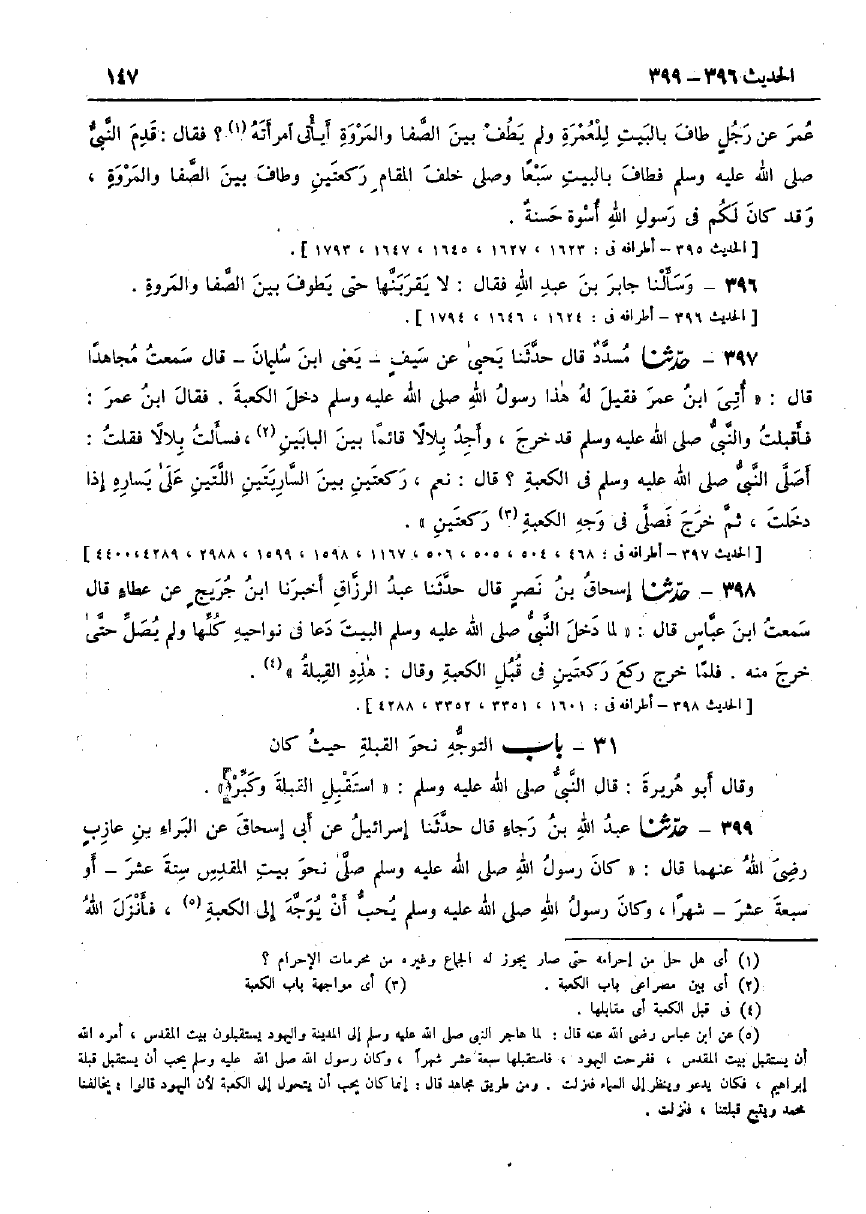 الحديث ٣٩٦ – ٣٩٩ ١٤٧
عُمرَ عن رَجُلٍ طافَ بالبَيتِ لِلْعُمْرَةِ ولم يَطُفْ بينَ الصَّفا والمَرْوَةِ أَيأْتى آمرأَتَهُ (١) ؟ فقال : قَدِمَ النَّبىُّ
صلى الله عليه وسلم فطافَ بالبيتِ سَبْعًا وصلى خلفَ المقام رَكعتَينِ وطافَ بينَ الصَّفا والمَرْوَةِ ،
وَقد كانَ لَكُم فى رَسولِ اللهِ أُسْوة حَسنةٌ .
[ الحديث ٣٩٥ – أطرافه فى : ١٦٢٣ ، ١٦٢٧ ، ١٦٤٥ ، ١٦٤٧ ، ١٧٩٣ ] .
٣٩٦ – وَسَأَلْنا جابرَ بنَ عبدِ اللهِ فقال : لا يَقرَبَنَّها حتى يَطوفَ بينَ الصَّفا والمَروةِ .
[ الحديث ٣٩٦ – أطرافه فى : ١٦٢٤ ، ١٦٤٦ ، ١٧٩٤ ] .
٣٩٧ – حدّثنا مُسدَّدٌ قال حدَّثَنا يَحيىٰ عن سَيفٍ – يَعنى ابنَ سُليمانَ – قال سَمعتُ مُجاهدًا
قال : « أُتِىَ ابنُ عمرَ فقيلَ لهُ هٰذا رسولُ اللهِ صلى الله عليه وسلم دخلَ الكعبةَ . فقالَ ابنُ عمرَ :
فأقبلتُ والنَّبىُّ صلى الله عليه وسلم قد خرجَ ، وأجِدُ بِلالًا قائمًا بينَ البابَينِ (٢) ، فسألتُ بِلالًا فقلتُ :
أَصَلَّى النَّبىُّ صلى الله عليه وسلم فى الكعبةِ ؟ قال : نعم ، رَكعتَينِ بينَ السَّارِيَتَينِ اللَّتَينِ عَلَىٰ يَسارِهِ إذا
دخَلتَ ، ثمَّ خرَجَ فَصلَّى فى وَجهِ الكعبةِ (٣) رَكعتَينِ » .
[ الحديث ٣٩٧ – أطرافه فى : ٤٦٨ ، ٥٠٤ ، ٥٠٥ ، ٥٠٦ ، ١١٦٧ ، ١٥٩٨ ، ١٥٩٩ ، ٢٩٨٨ ، ٤٢٨٩ ، ٤٤٠٠ ]
٣٩٨ – حدّثنا إسحاقُ بنُ نَصرٍ قال حدَّثَنا عبدُ الرزَّاقِ أخبرَنا ابنُ جُرَيجٍ عن عطاءٍ قال
سَمعتُ ابنَ عبَّاسٍ قال : « لما دَخلَ النَّبىُّ صلى الله عليه وسلم البيتَ دَعا فى نواحيهِ كُلِّها ولم يُصَلِّ حتَّىٰ
خرجَ منه . فلمّا خرج ركعَ رَكعتَينِ فى قُبُلِ الكعبةِ وقال : هٰذِهِ القِبلةُ » (٤) .
[ الحديث ٣٩٨ – أطرافه فى : ١٦٠١ ، ٣٣٥١ ، ٣٣٥٢ ، ٤٢٨٨ ] .
٣١ – باب التوجُّهِ نحوَ القبلةِ حيثُ كان
وقال أبو هُريرةَ : قال النَّبىُّ صلى الله عليه وسلم : « استَقْبِلِ القبلةَ وكَبِّرْ » .
٣٩٩ – حدّثنا عبدُ اللهِ بنُ رَجاءٍ قال حدَّثَنا إسرائيلُ عن أبى إسحاقَ عن البَراءِ بنِ عازِبٍ
رضِىَ اللهُ عنهما قال : « كانَ رسولُ اللهِ صلى الله عليه وسلم صلَّىٰ نحوَ بيتِ المقدِسِ سِتةَ عشرَ – أو
سبعةَ عشرَ – شهرًا ، وكانَ رسولُ اللهِ صلى الله عليه وسلم يُحبُّ أنْ يُوَجَّهَ إلى الكعبةِ (٥) ، فأنْزَلَ اللهُ
(١) أى هل حل من إحرامه حتى صار يجوز له الجماع وغيره من محرمات الإحرام ؟
(٢) أى بين مصراعى باب الكعبة . (٣) أى مواجهة باب الكعبة
(٤) فى قبل الكعبة أى مقابلها .
(٥) عن ابن عباس رضى الله عنه قال : لما هاجر النبى صلى الله عليه وسلم إلى المدينة واليهود يستقبلون بيت المقدس ، أمره الله
أن يستقبل بيت المقدس ، ففرحت اليهود ، فاستقبلها سبعة عشر شهراً ، وكان رسول الله صلى الله عليه وسلم يحب أن يستقبل قبلة
إبراهيم ، فكان يدعو وينظر إلى السماء فنزلت . ومن طريق مجاهد قال : إنما كان يحب أن يتحول إلى الكعبة لأن اليهود قالوا : يخالفنا
محمد ويتبع قبلتنا ، فنزلت .